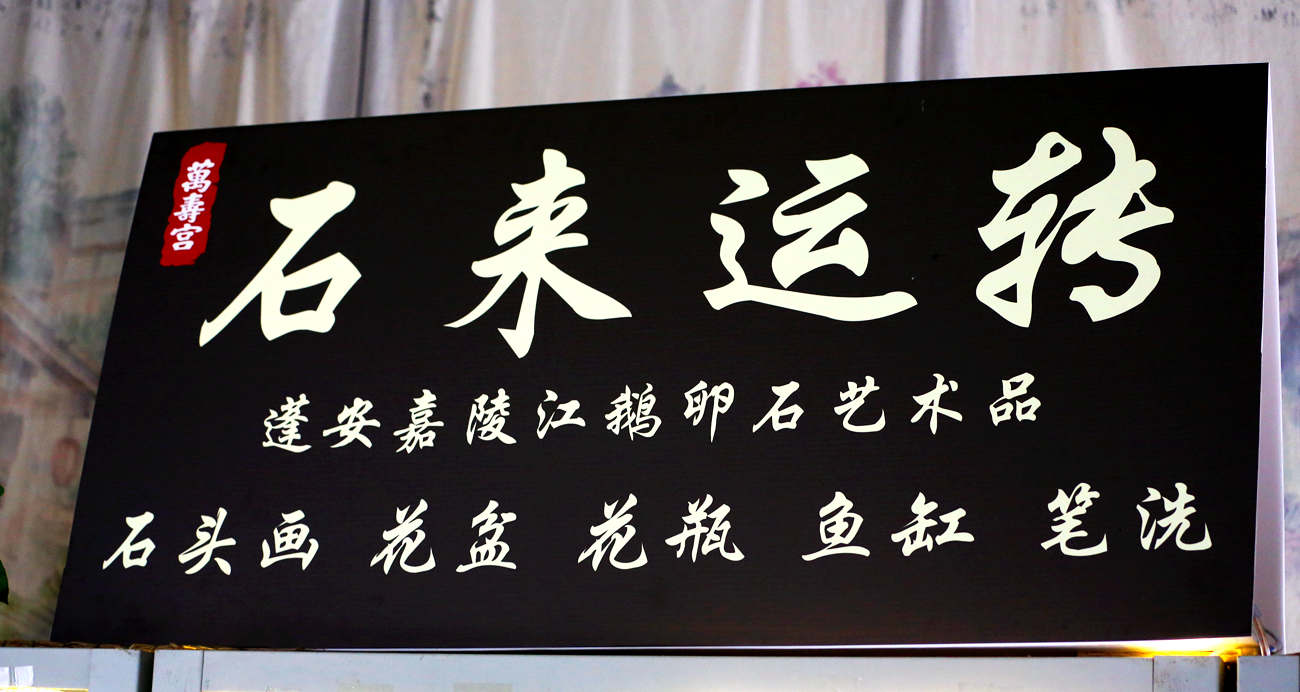 萬壽宫
石来运转
蓬安嘉陵江鹅卵石艺术品
石头画 花盆 花瓶 鱼缸 笔洗